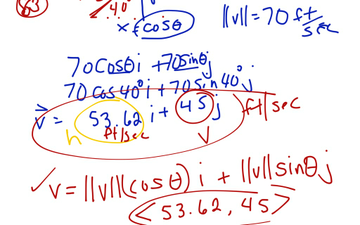 63
40°
x = cosθ
||v|| = 70 ft/sec
70cosθi + 70sinθj
70 cos 40°i + 70 sin 40°j
v = 53.62 i + 45 j ft/sec
ft/sec
h
v
✓ v = ||v||(cosθ) i + ||v|| sinθ j
< 53.62, 45 >